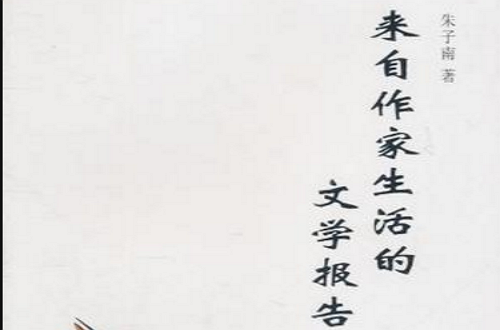 朱子南 著
来自作家生活的
文学报告